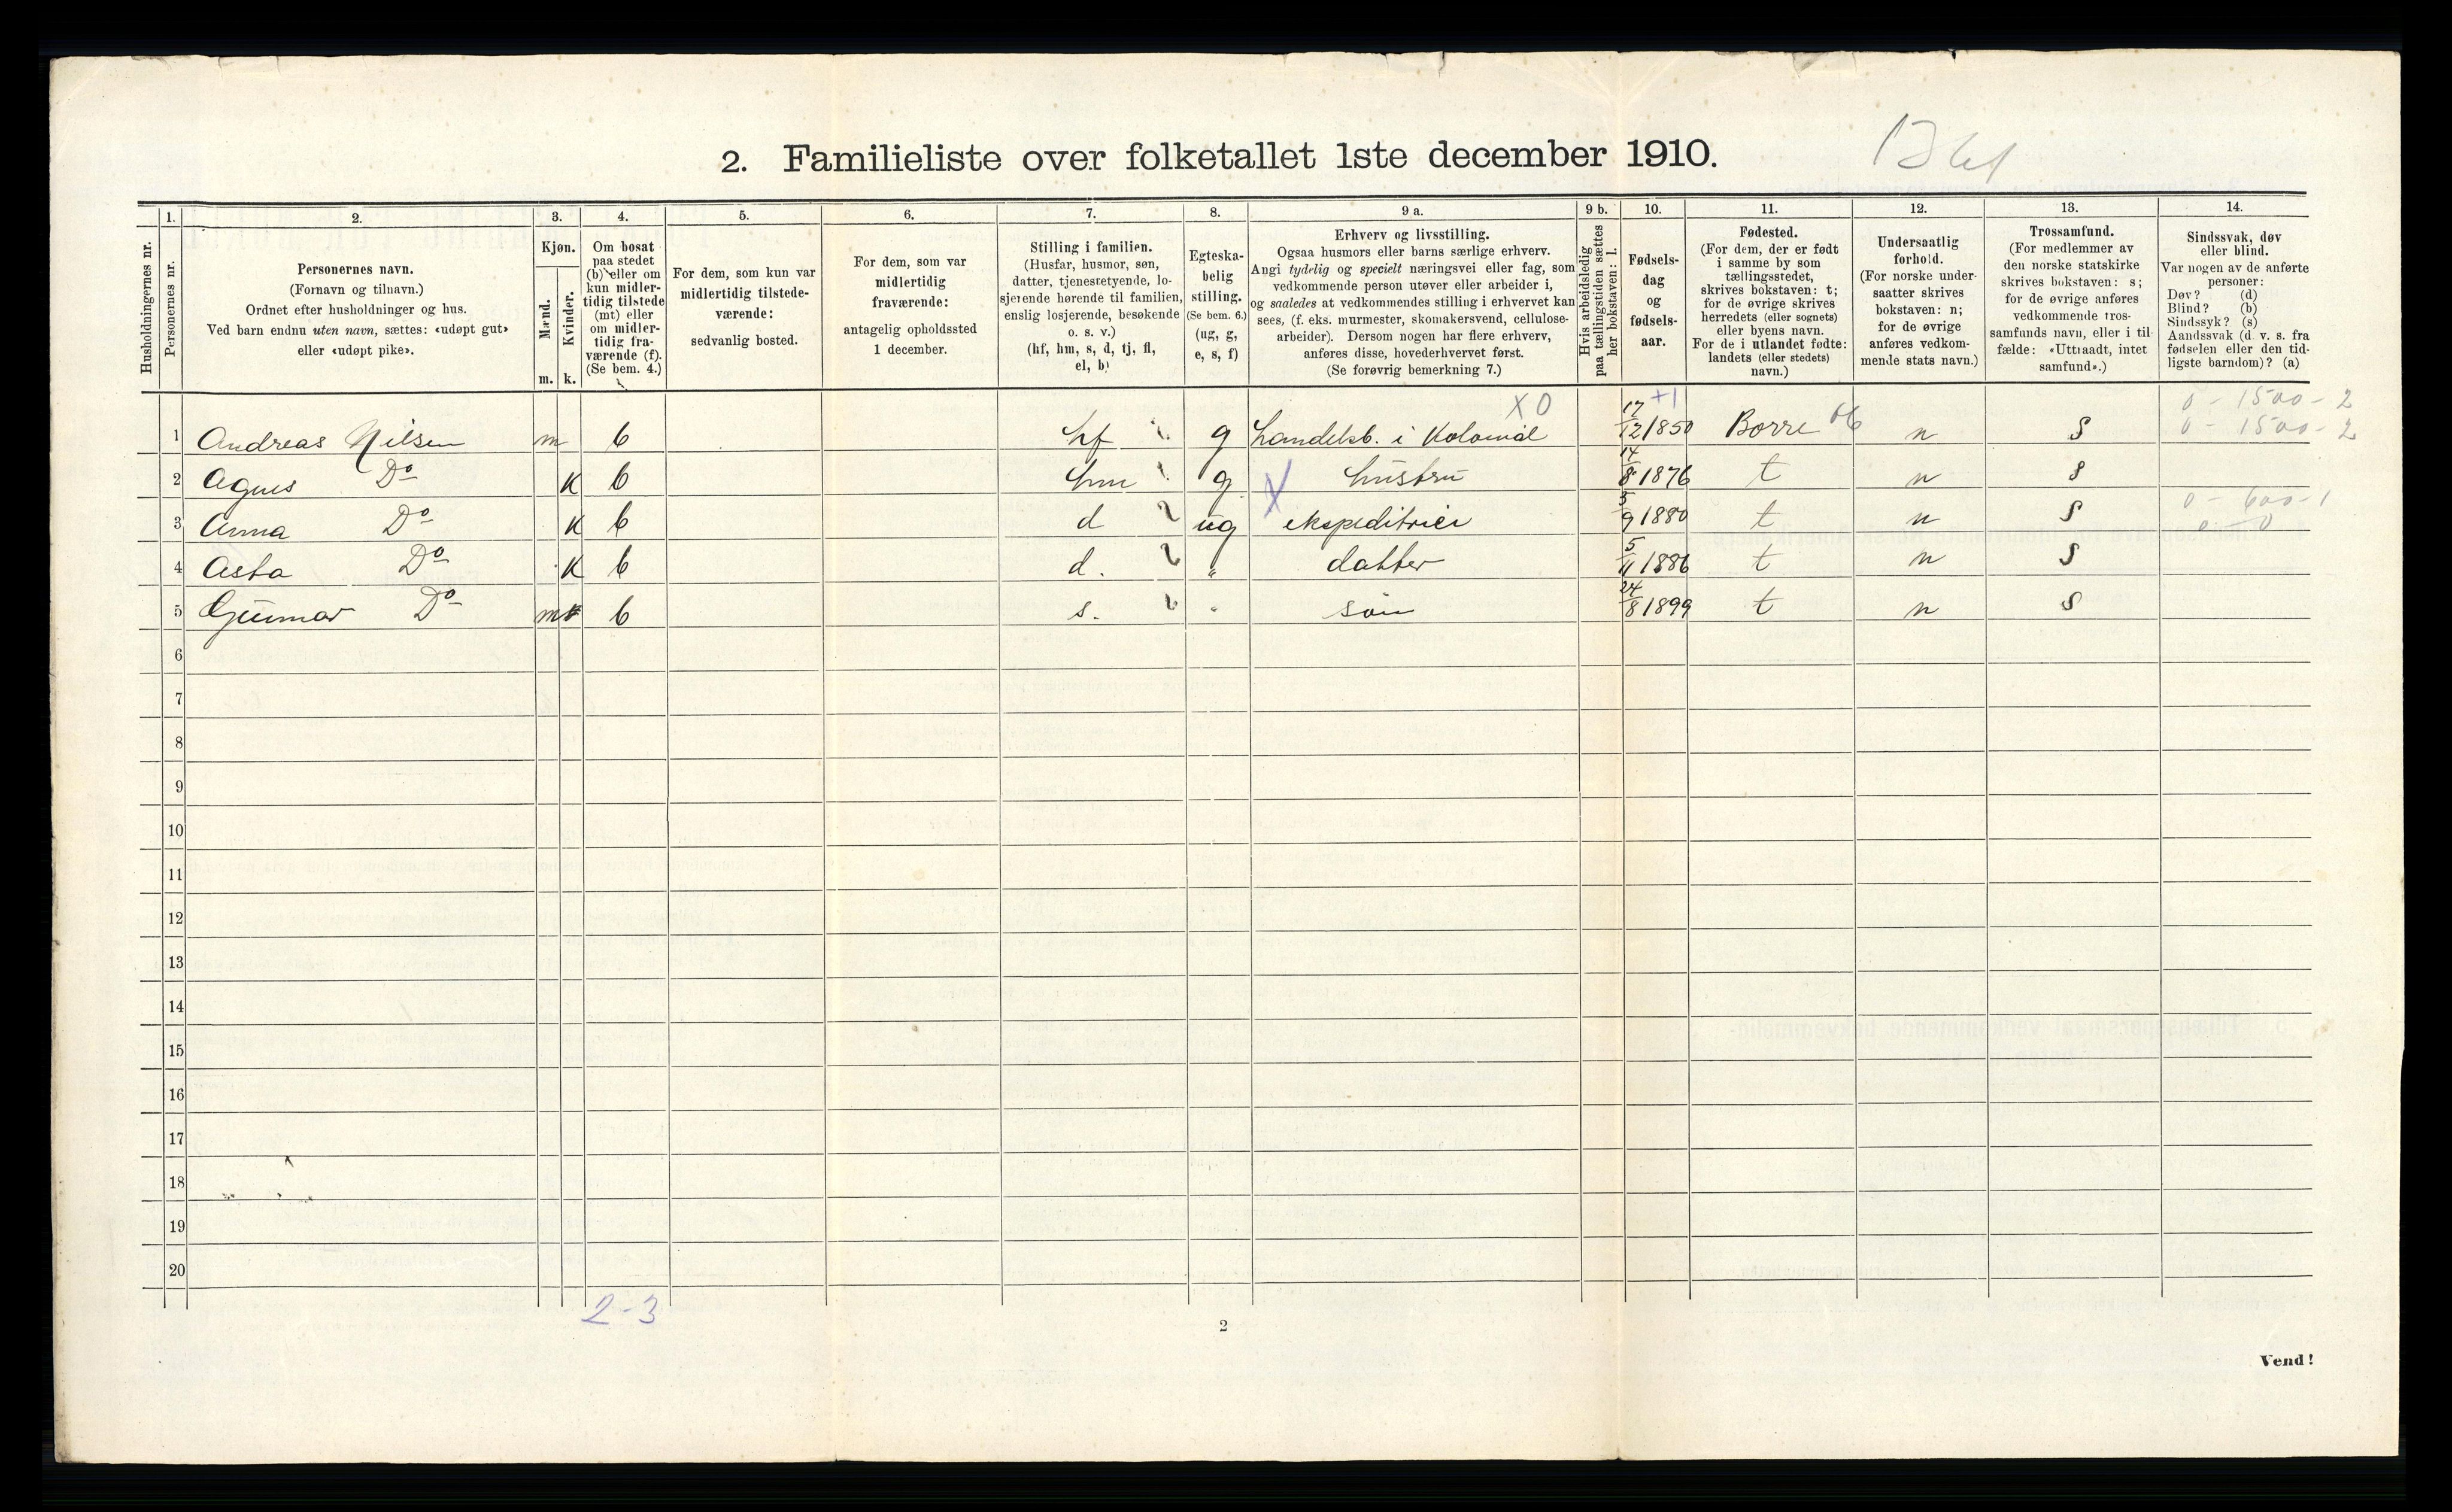 2. Familieliste over folketallet 1ste december 1910.
Husholdningernes nr.
1.
Personernes nr.
2.
Personernes navn.
(Fornavn og tilnavn.)
Ordnet efter husholdninger og hus.
Ved barn endnu uten navn, sættes: «udøpt gut»
eller «udøpt pike».
3.
Kjøn.
Mænd.
Kvinder.
m. k.
4.
Om bosat
paa stedet
(b) eller om
kun midler-
tidig tilstede
(mt) eller
om midler-
tidig fra-
værende (f).
(Se bem. 4.)
5.
For dem, som kun var
midlertidig tilstede-
værende:
sedvanlig bosted.
6.
For dem, som var
midlertidig
fraværende:
antagelig opholdssted
1 december.
7.
Stilling i familien.
(Husfar, husmor, søn,
datter, tjenestetyende, lo-
sjerende hørende til familien,
enslig losjerende, besøkende
o. s. v.)
(hf, hm, s, d, tj, fl,
el, b)
8.
Egteska-
belig
stilling.
(Se bem. 6.)
(ug, g,
e, s, f)
9 a.
Erhverv og livsstilling.
Ogsaa husmors eller barns særlige erhverv.
Angi tydelig og specielt næringsvei eller fag, som
vedkommende person utøver eller arbeider i,
og saaledes at vedkommendes stilling i erhvervet kan
sees, (f. eks. murmester, skomakersvend, cellulose-
arbeider). Dersom nogen har flere erhverv,
anføres disse, hovederhvervet først.
(Se forøvrig bemerkning 7.)
9 b.
Hvis arbeidsledig
paa tællingstiden sættes
her bokstaven: l.
10.
Fødsels-
dag
og
fødsels-
aar.
11.
Fødested.
(For dem, der er født
i samme by som
tællingsstedet,
skrives bokstaven: t;
for de øvrige skrives
herredets (eller sognets)
eller byens navn.
For de i utlandet fødte:
landets (eller stedets)
navn.)
12.
Undersaatlig
forhold.
(For norske under-
saatter skrives
bokstaven: n;
for de øvrige
anføres vedkom-
mende stats navn.)
13.
Trossamfund.
(For medlemmer av
den norske statskirke
skrives bokstaven: s;
for de øvrige anføres
vedkommende tros-
samfunds navn, eller i til-
fælde: «Uttraadt, intet
samfund».)
14.
Sindssvak, døv
eller blind.
Var nogen av de anførte
personer:
Døv? (d)
Blind? (b)
Sindssyk? (s)
Aandssvak (d. v. s. fra
fødselen eller den tid-
ligste barndom)? (a)
X 0 +1 0 - 1500 - 2
1 Andreas Nilsen m b hf g Handelsb. i Kolonial 17/12 1850 Borre 06 n S 0 - 1500 - 2
2 Agnes Do K b hm g X hustru 14/8 1876 t n S
3 Anna Do K b d ug ekspeditrice 5/9 1880 t n S 0 - 600 - 1
4 Asta Do K b d. " datter 5/11 1886 t n S
5 Gunnar Do m b s. " søn 24/8 1899 t n S
6
7
8
9
10
11
12
13
14
15
16
17
18
19
20
2-3
2
Vend!